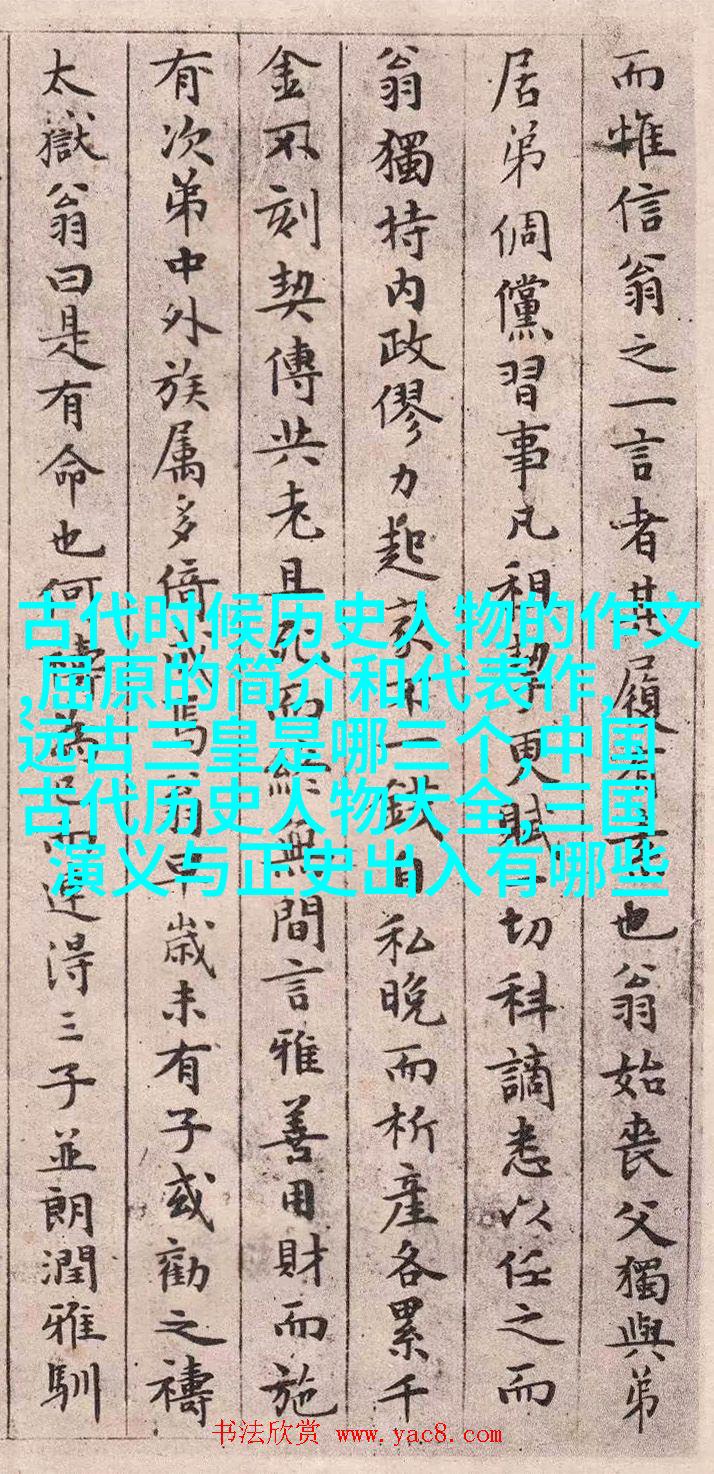 而惟信翁之一言者其履也翁始喪父獨與弟
居弟倜儻習事凡租挈更賦一切科謫悉以任之而
翁獨持内政僇力起家不一錢自私晚而析產各累千
金不刻契傳共老且死而終無間言雅善用財而施
有次弟中外族属多倚成焉翁早歲未有子或勸之禱
太嶽翁曰是有命也何禱為已而連得三子並朗潤雅馴
古代时候历史人物的作文
,屈原的简介和代表作,
远古三皇是哪三个,中国
古代历史人物大全,三国
演义与正史出入有哪些
书法欣赏 www.yac8.com